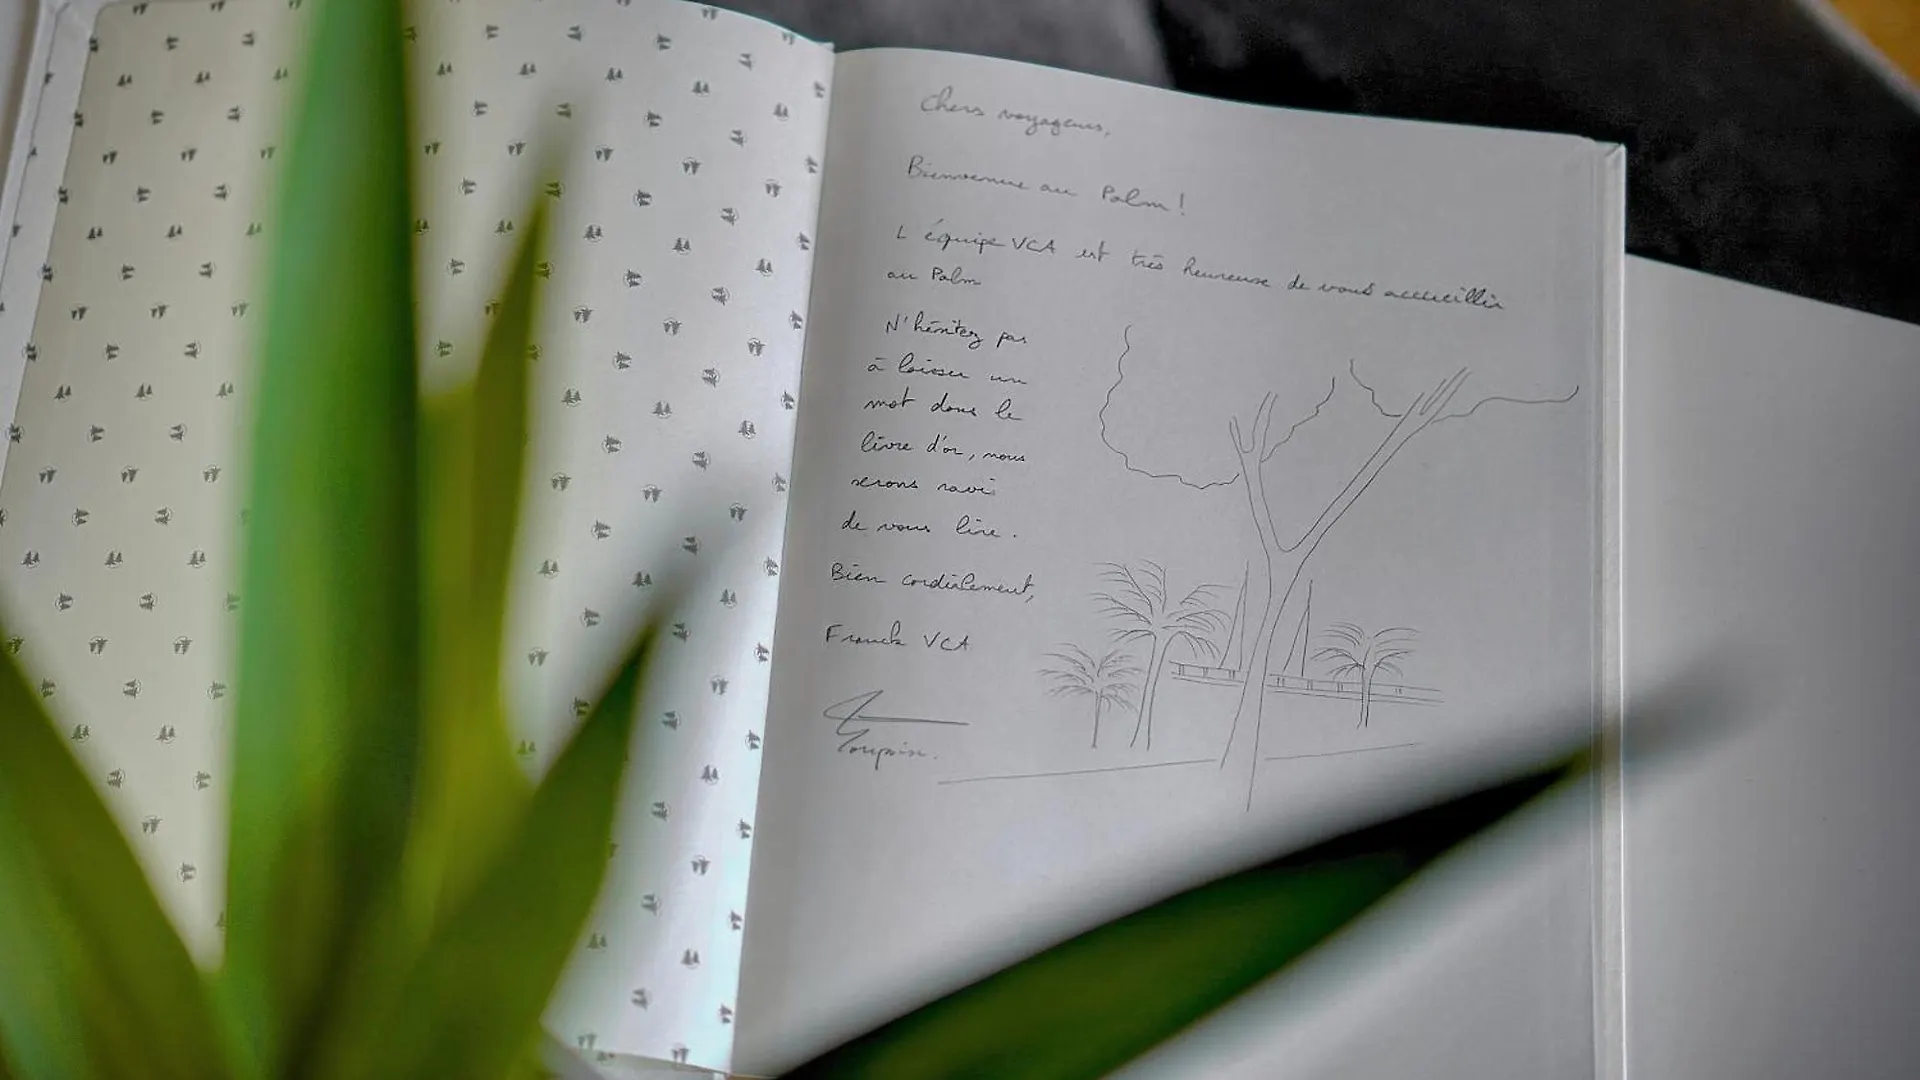 Chers voyageurs,
Bienvenue au Palm !
L'équipe VCA est très heureuse de vous accueillir
au Palm
N'hésitez pas
à laisser un
mot dans le
livre d'or, nous
serons ravis
de vous lire.
Bien cordialement,
Franck VCA